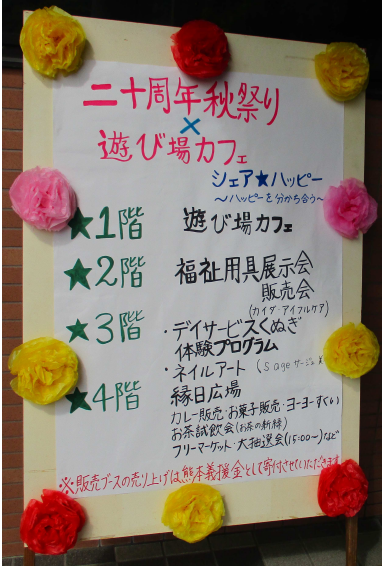 二十周年秋祭り
×
遊び場カフェ
シェア★ハッピー
〜ハッピーを分かち合う〜
★1階 遊び場カフェ
★2階 福祉用具展示会
販売会
(カイダ・アイフルケア)
★3階 ・デイサービスくぬぎ
体験プログラム
・ネイルアート (sage
★4階 縁日広場
カレー販売・お菓子販売・ヨーヨーすくい
お茶試飲会(お茶の新緑)
フリーマーケット・大抽選会(15:00〜)など
※販売ブースの売り上げは熊本義援金として寄付させていただきます